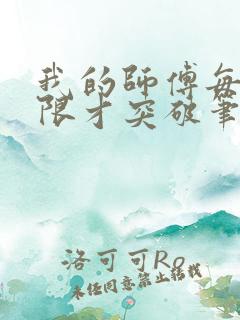 我的师傅每
限才突破笔
洛可可Ro
未经同意禁止转载